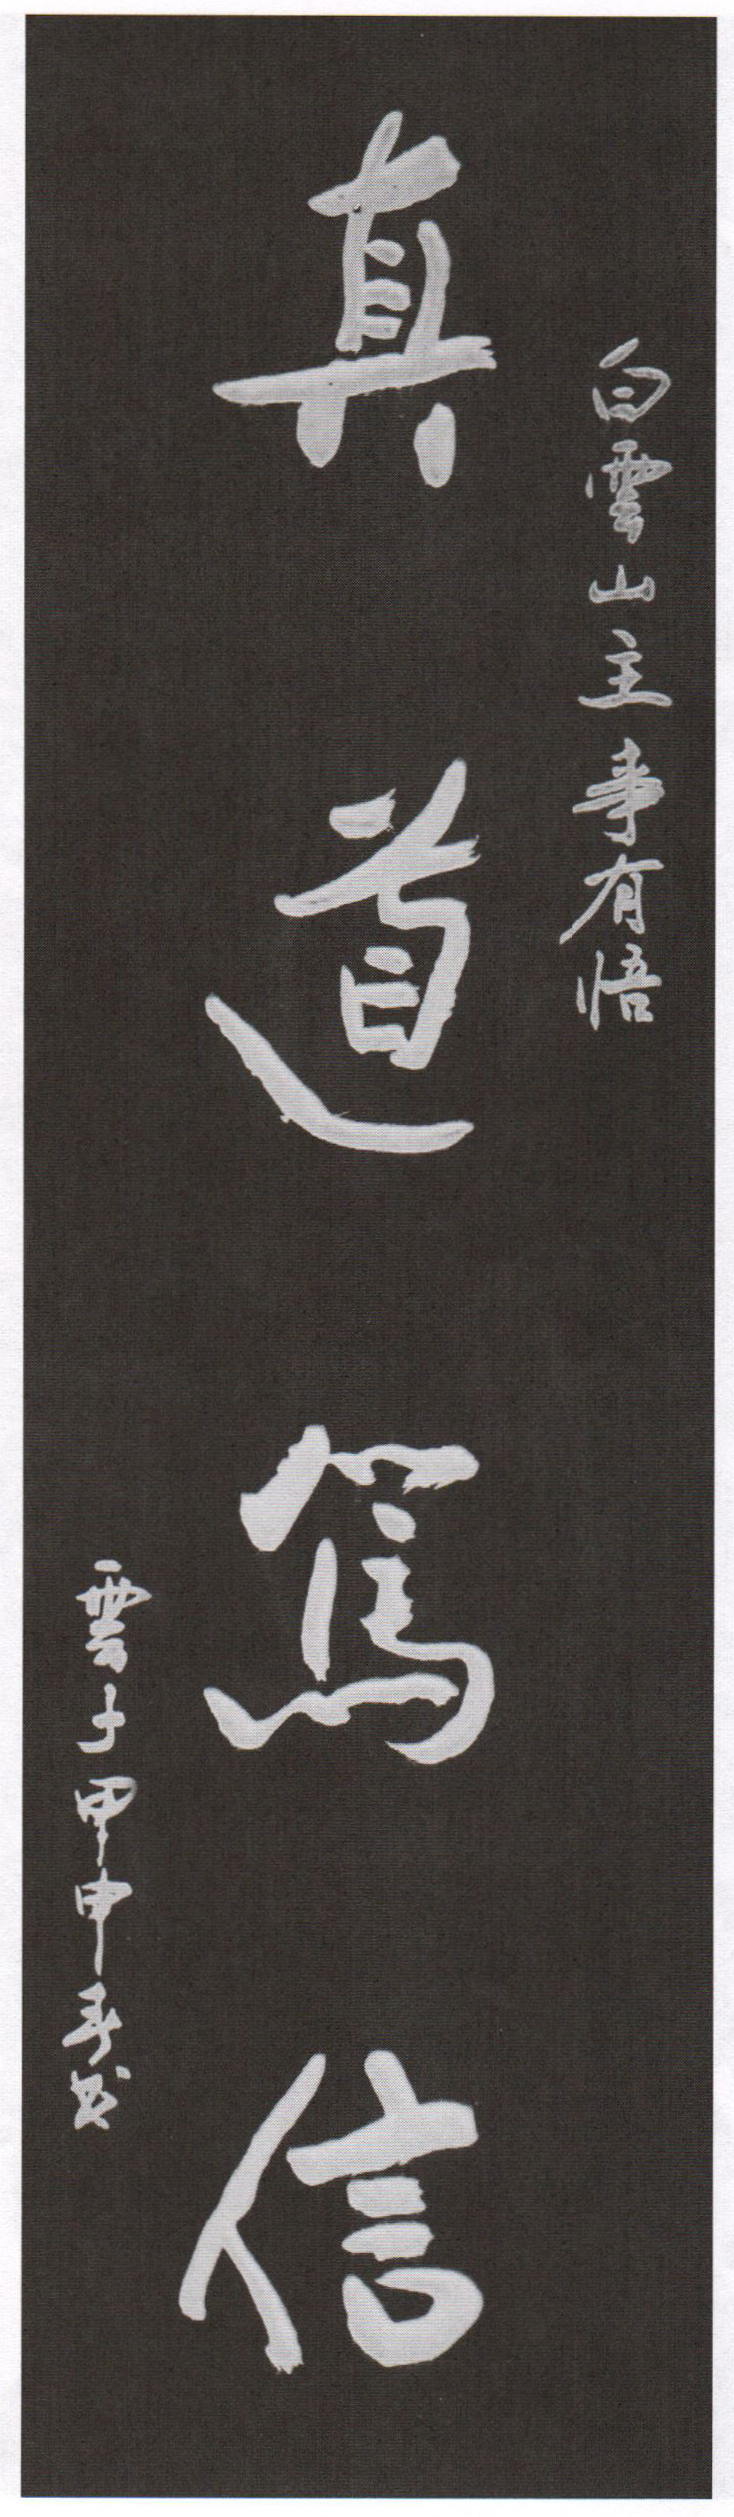 白雲山主事有悟
真道篤信
雲子甲申春書